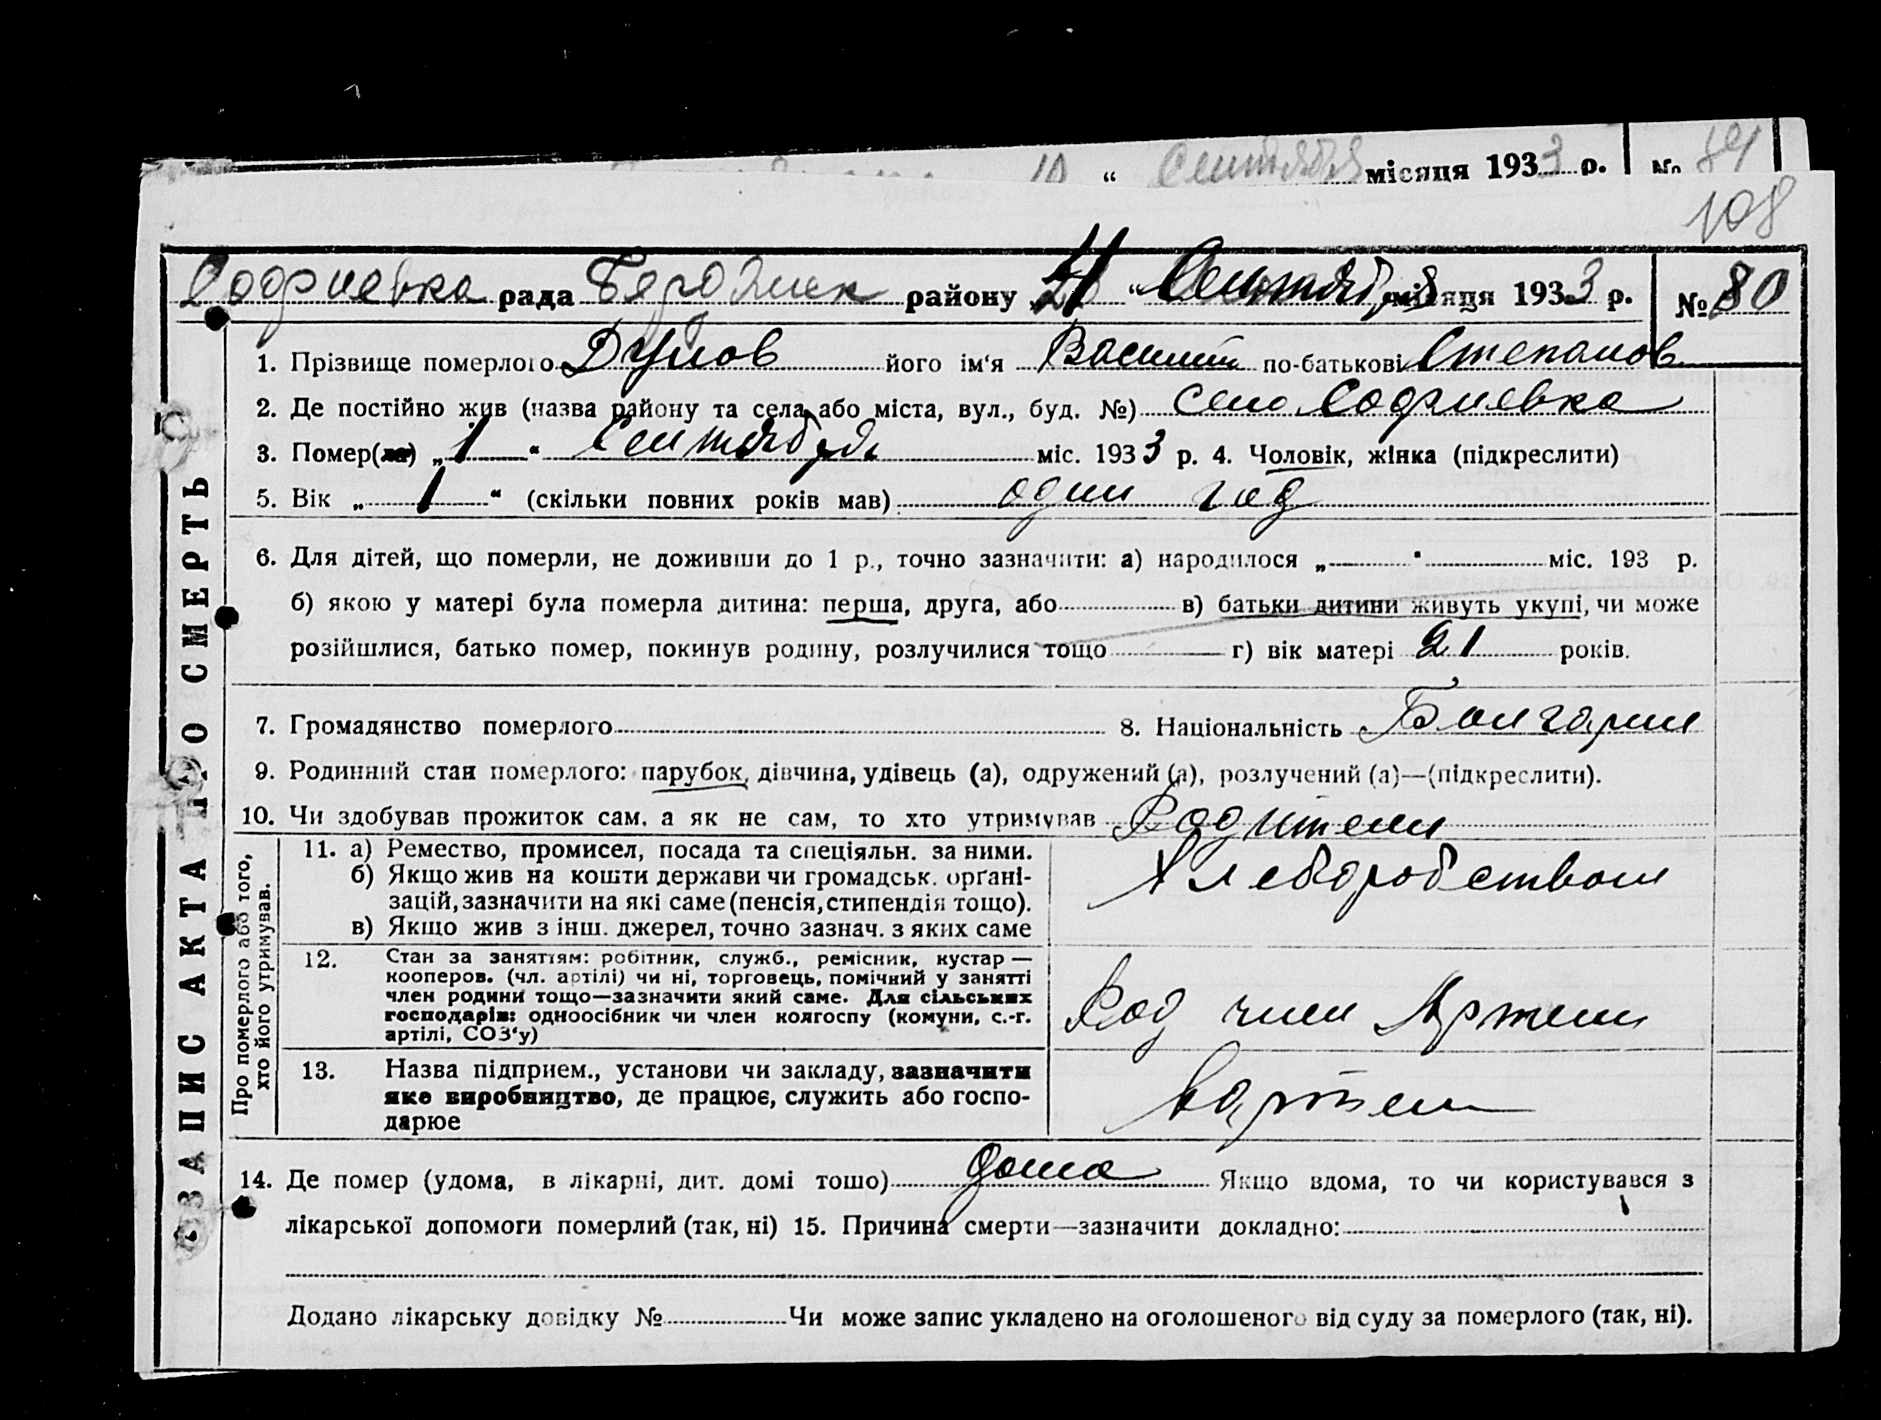 10 “ Сентября місяця 1933 р. № 81
108
Софиевка рада Бердянск району 4 “ Сентября місяця 1933 р. № 80
1. Прізвище померлого Дунов його ім‘я Василий по-батькові Степанов
2. Де постійно жив (назва району та села або міста, вул., буд. №) село Софиевка
3. Помер(ла) „ 1 “ Сентября міс. 1933 р. 4. Чоловік, жінка (підкреслити)
5. Вік „ 1 “ (скільки повних років мав) один год
6. Для дітей, що померли, не доживши до 1 р., точно зазначити: а) народилося „ “ міс. 193 р.
б) якою у матері була померла дитина: перша, друга, або в) батьки дитини живуть укупі, чи може
розійшлися, батько помер, покинув родину, розлучилися тощо г) вік матері 21 років.
7. Громадянство померлого 8. Національність Болгарин
9. Родинний стан померлого: парубок, дівчина, удівець (а), одружений (а), розлучений (а)—(підкреслити).
10. Чи здобував прожиток сам, а як не сам, то хто утримував Родители
ЗАПИС АКТА ПРО СМЕРТЬ
Про померлого або того,
хто його утримував.
11. а) Ремество, промисел, посада та спеціяльн. за ними.
б) Якщо жив на кошти держави чи громадськ. орґані-
зацій, зазначити на які саме (пенсія, стипендія тощо).
в) Якщо жив з інш. джерел, точно зазнач. з яких саме
Хлеборобством
12. Стан за заняттям: робітник, служб., ремісник, кустар —
кооперов. (чл. артілі) чи ні, торговець, помічний у занятті
член родини тощо—зазначити який саме. Для сільських
господарів: одноосібник чи член колгоспу (комуни, с.-г.
артілі, СОЗ‘у)
Род член Артели
13. Назва підприєм., установи чи закладу, зазначити
яке виробництво, де працює, служить або госпо-
дарює
Вартели
14. Де помер (удома, в лікарні, дит. домі тошо) дома Якщо вдома, то чи користувався з
лікарської допомоги померлий (так, ні) 15. Причина смерти—зазначити докладно:
Додано лікарську довідку № Чи може запис укладено на оголошеного від суду за померлого (так, ні).